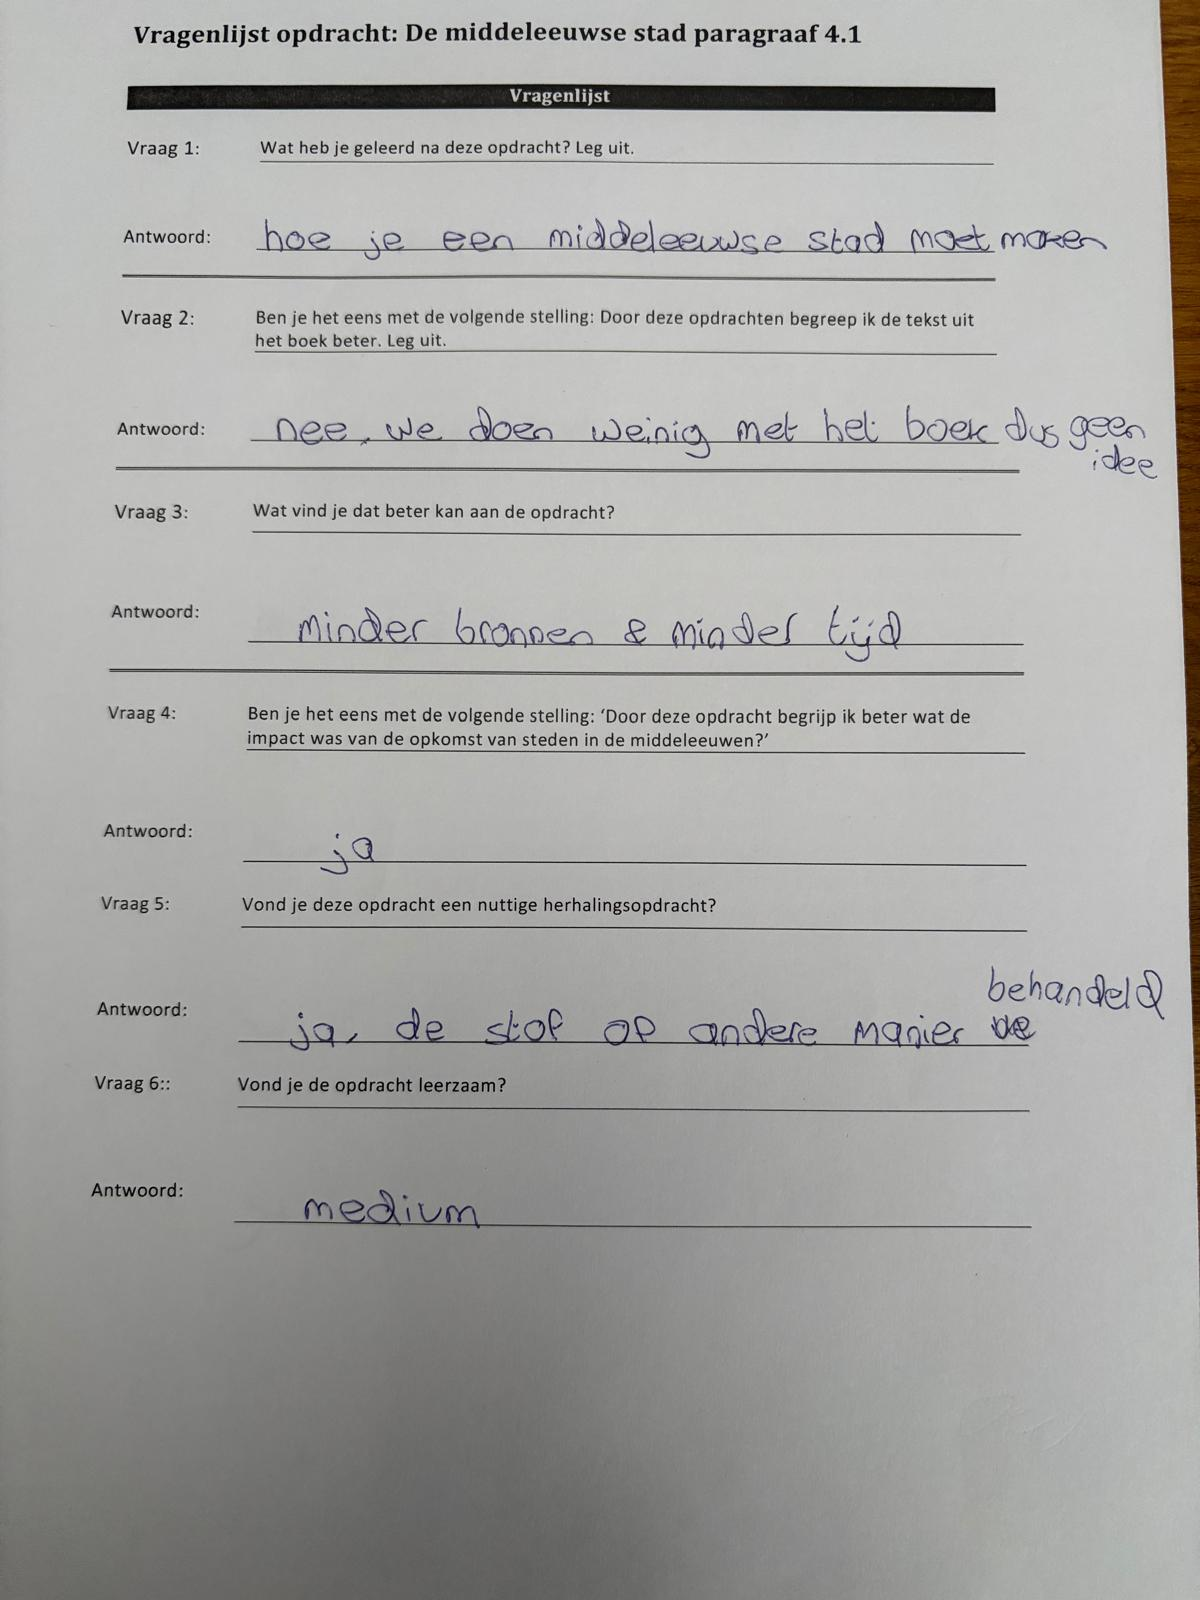 Vragenlijst opdracht: De middeleeuwse stad paragraaf 4.1
Vragenlijst
Vraag 1: Wat heb je geleerd na deze opdracht? Leg uit.
Antwoord: hoe je een middeleeuwse stad moet maken
Vraag 2: Ben je het eens met de volgende stelling: Door deze opdrachten begreep ik de tekst uit
het boek beter. Leg uit.
Antwoord: nee, we doen weinig met het boek dus geen
idee
Vraag 3: Wat vind je dat beter kan aan de opdracht?
Antwoord: minder bronnen & minder tijd
Vraag 4: Ben je het eens met de volgende stelling: ‘Door deze opdracht begrijp ik beter wat de
impact was van de opkomst van steden in de middeleeuwen?’
Antwoord: ja
Vraag 5: Vond je deze opdracht een nuttige herhalingsopdracht?
behandeld
Antwoord: ja, de stof op andere manier
Vraag 6:: Vond je de opdracht leerzaam?
Antwoord: medium